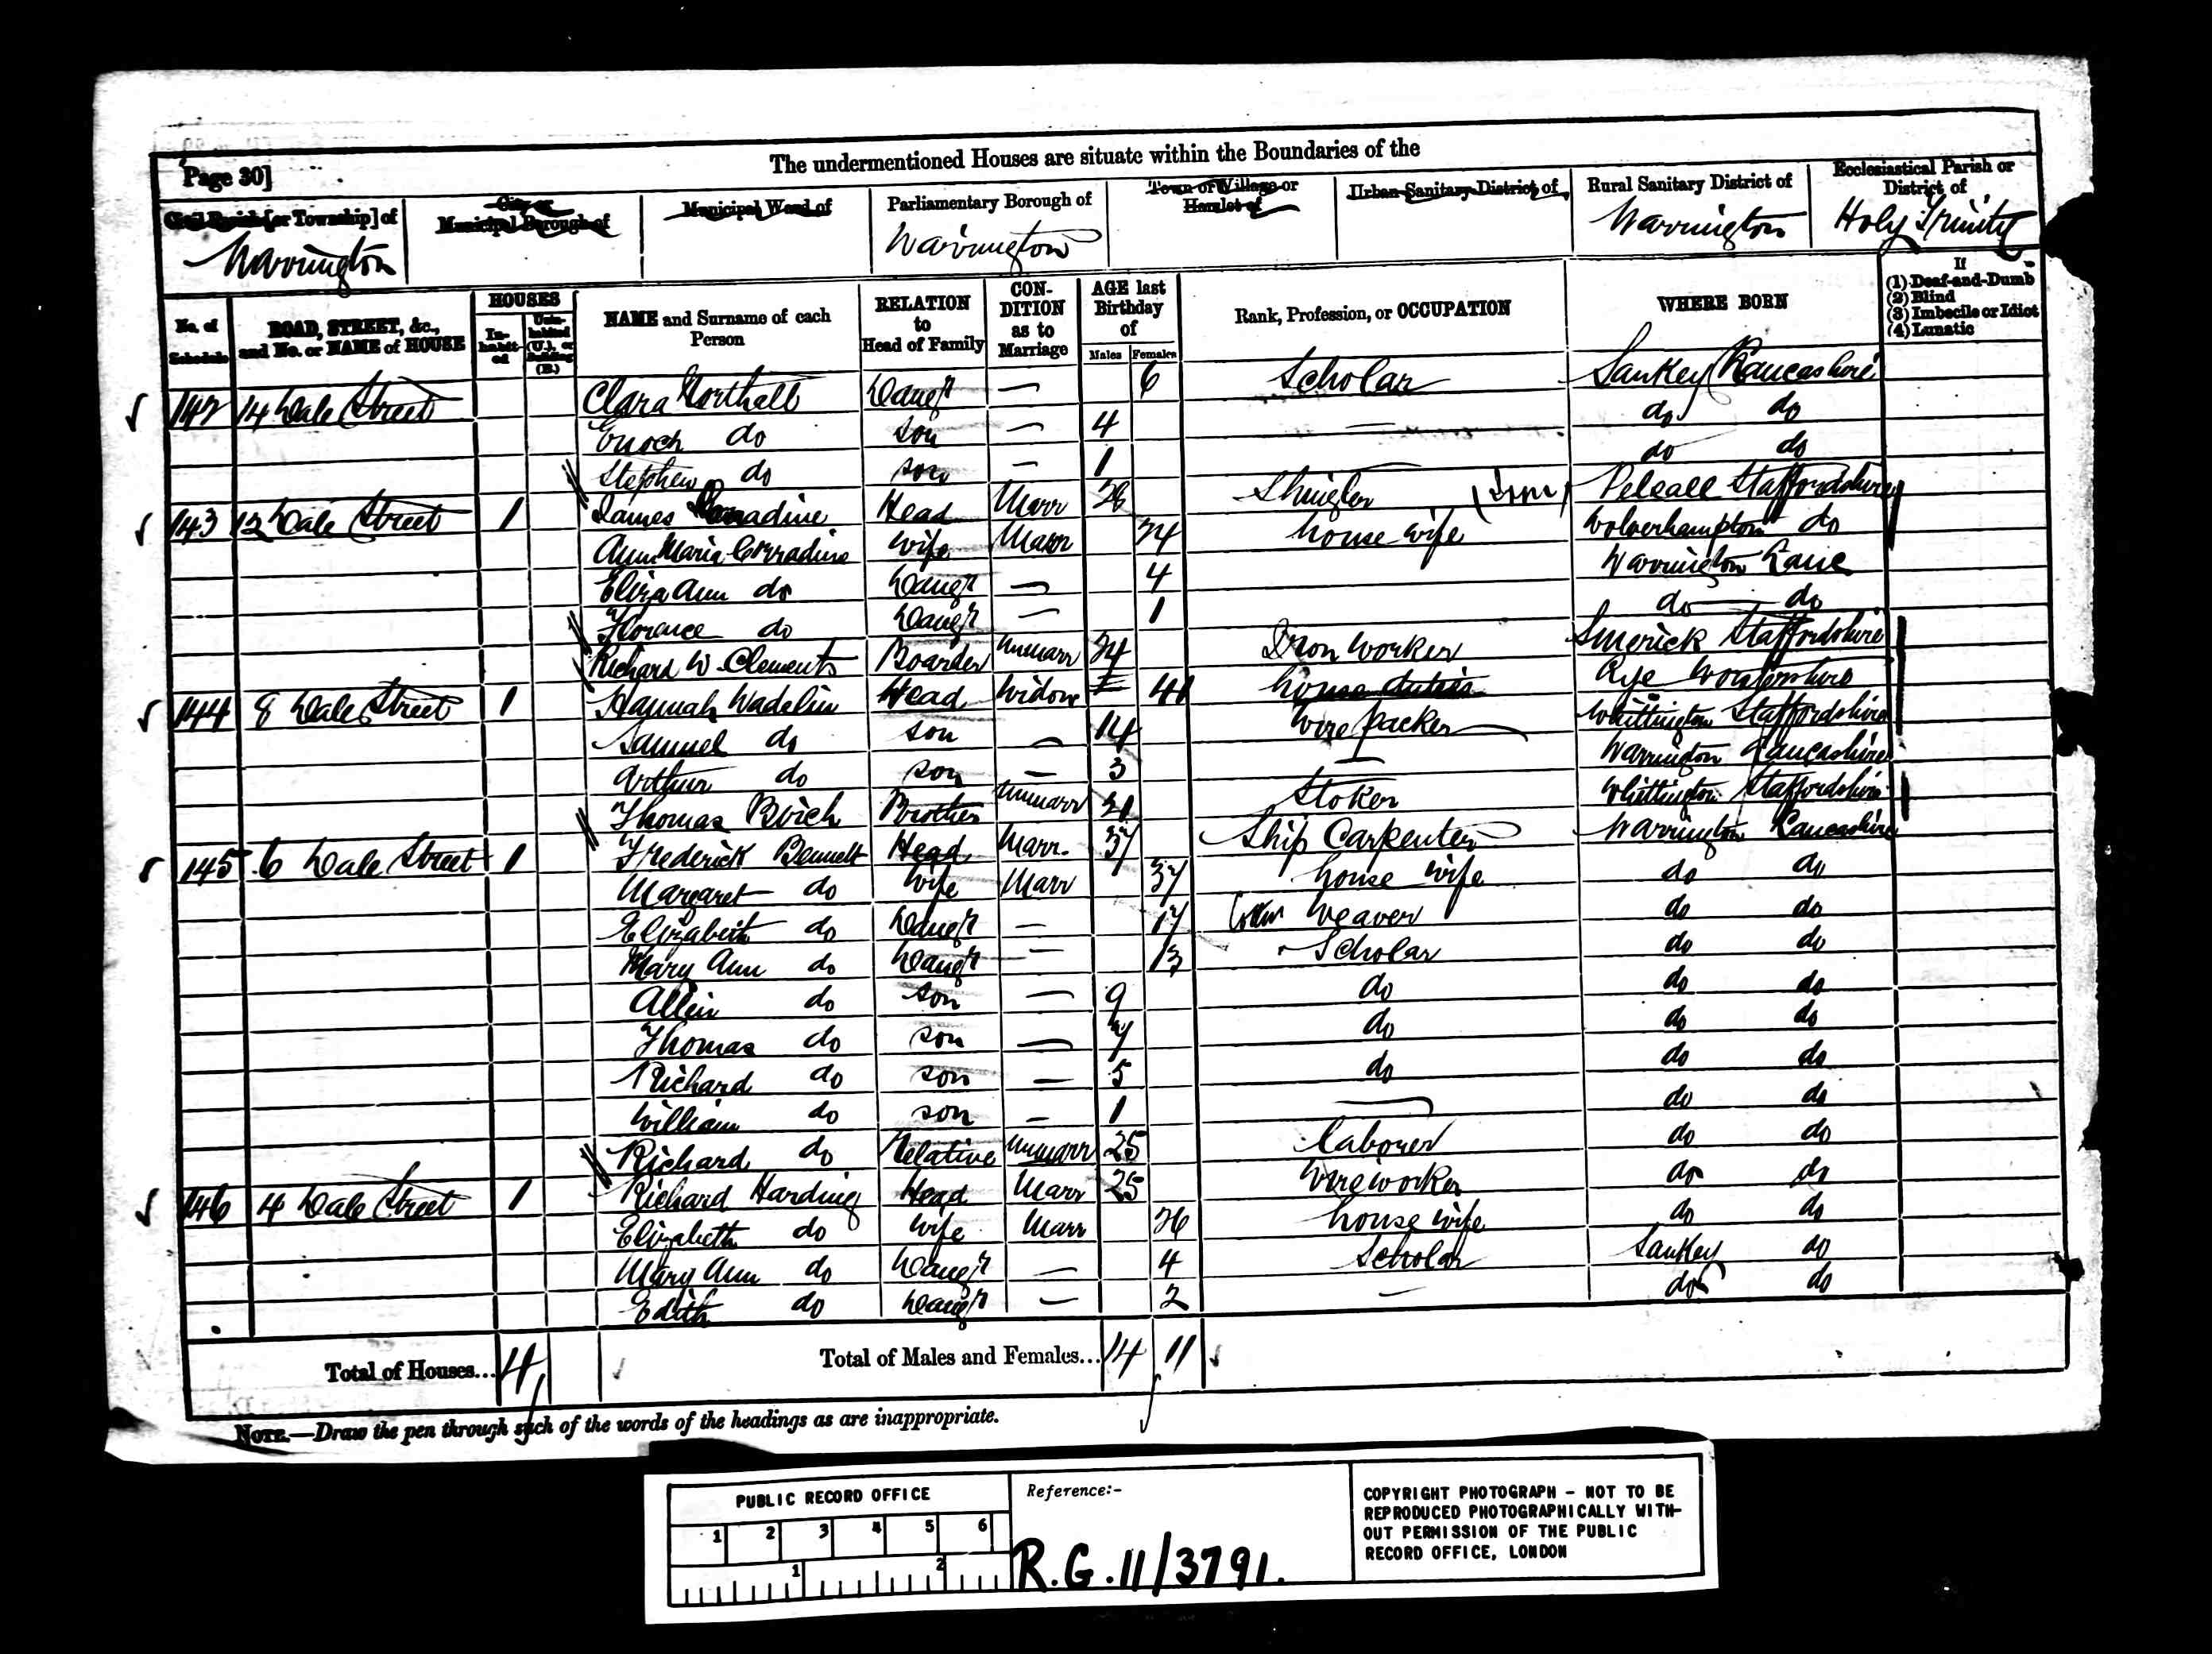 Page 30]
The undermentioned Houses are situate within the Boundaries of the
Civil Parish [or Township] of
City or Municipal Borough of
Municipal Ward of
Parliamentary Borough of
Town or Village or Hamlet of
Urban Sanitary District of
Rural Sanitary District of
Ecclesiastical Parish or District of
Warrington Warrington Warrington Holy Trinity
No. of Schedule
ROAD, STREET, &c., and No. or NAME of HOUSE
HOUSES
Inhabited
Uninhabited (U.), or Building (B.)
NAME and Surname of each Person
RELATION to Head of Family
CONDITION as to Marriage
AGE last Birthday of
Males Females
Rank, Profession, or OCCUPATION
WHERE BORN
If
(1) Deaf-and-Dumb
(2) Blind
(3) Imbecile or Idiot
(4) Lunatic
142 14 Dale Street Clara Northall Daugr — 6 Scholar Sankey Lancashire
Enoch do son — 4 — do do
Stephen do son — 1 — do do
143 12 Dale Street 1 James Head Marr Shingler (Iron) Pelsall Staffordshire
Ann Maria Corradine wife Marr 24 house wife Wolverhampton do
Eliza Ann do Daugr — 4 Warrington Lanc
Florence do Daugr — 1 do do
Richard W. Clements Boarder Unmarr 24 Iron Worker Smerick Staffordshire
144 8 Dale Street 1 Hannah Wadelin Head Widow 41 house duties Rye Worstershire
Samuel do son — 14 Wire packer Whittington Staffordshire
Arthur do son — 3 — Warrington Lancashire
Thomas Birch Brother Unmarr Stoker Whittington Staffordshire
145 6 Dale Street 1 Frederick Bennett Head Marr. 37 Ship Carpenter Warrington Lancashire
Margaret do Wife Marr 37 house wife do do
Elizabeth do Daugr — 17 Weaver do do
Mary Ann do Daugr — 13 Scholar do do
Allen do son — 9 do do do
Thomas do son — 7 do do do
Richard do son — 5 do do do
William do son — 1 — do do
Richard do Relative Unmarr 25 Laborer do do
146 4 Dale Street 1 Richard Harding Head Marr 25 Wireworker do do
Elizabeth do wife Marr 26 house wife do do
Mary Ann do Daugr — 4 Scholar Sankey do
Edith do Daugr — 2 — do do
Total of Houses... 4
Total of Males and Females... 14 11
NOTE.—Draw the pen through such of the words of the headings as are inappropriate.
PUBLIC RECORD OFFICE
1 2 3 4 5 6
1 2
Reference:-
R.G. 11/3791.
COPYRIGHT PHOTOGRAPH – NOT TO BE
REPRODUCED PHOTOGRAPHICALLY WITH-
OUT PERMISSION OF THE PUBLIC
RECORD OFFICE, LONDON